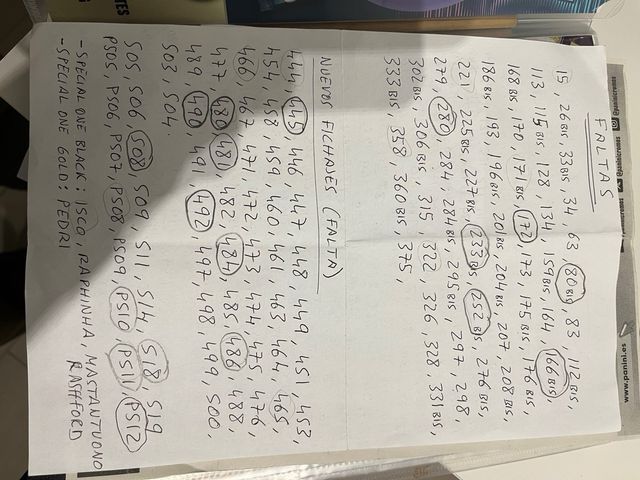 FALTAS
15, 26 BIS, 33 BIS, 34, 63, 80 BIS, 83, 112 BIS,
113, 115 BIS, 128, 134, 159 BIS, 164, 166 BIS,
168 BIS, 170, 171 BIS, 172, 173, 175 BIS, 176 BIS,
186 BIS, 193, 196 BIS, 201 BIS, 204 BIS, 207, 208 BIS,
221, 225 BIS, 227 BIS, 233 BIS, 252 BIS, 276 BIS,
279, 280, 284, 284 BIS, 295 BIS, 297, 298,
302 BIS, 306 BIS, 315, 322, 326, 328, 331 BIS,
333 BIS, 358, 360 BIS, 375,
NUEVOS FICHAJES (FALTA)
444, 445, 446, 447, 448, 449, 451, 453,
454, 458, 459, 460, 461, 463, 464, 465,
466, 467, 471, 472, 473, 474, 475, 476
477, 480, 481, 482, 484, 485, 486, 488,
489, 490, 491, 492, 497, 498, 499, 500,
503, 504.
SO5, SO6, SO8, SO9, S11, S14, S18, S19
PSO5, PSO6, PSO7, PSO8, PSO9, PS10, PS11, PS12
- SPECIAL ONE BLACK: ISCO, RAPHINHA, MASTANTUONO
RASHFORD
- SPECIAL ONE GOLD: PEDRI
www.panini.es